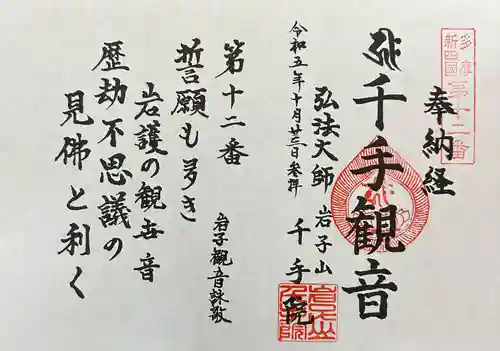 多摩
新四国
第十二番
奉納経
千手観音
弘法大師
岩子山
千手院
令和五年十月廿三日参拝
第十二番
誓願も多き
岩護の観世音
歴劫不思議の
見佛と利く
岩子観音詠歌